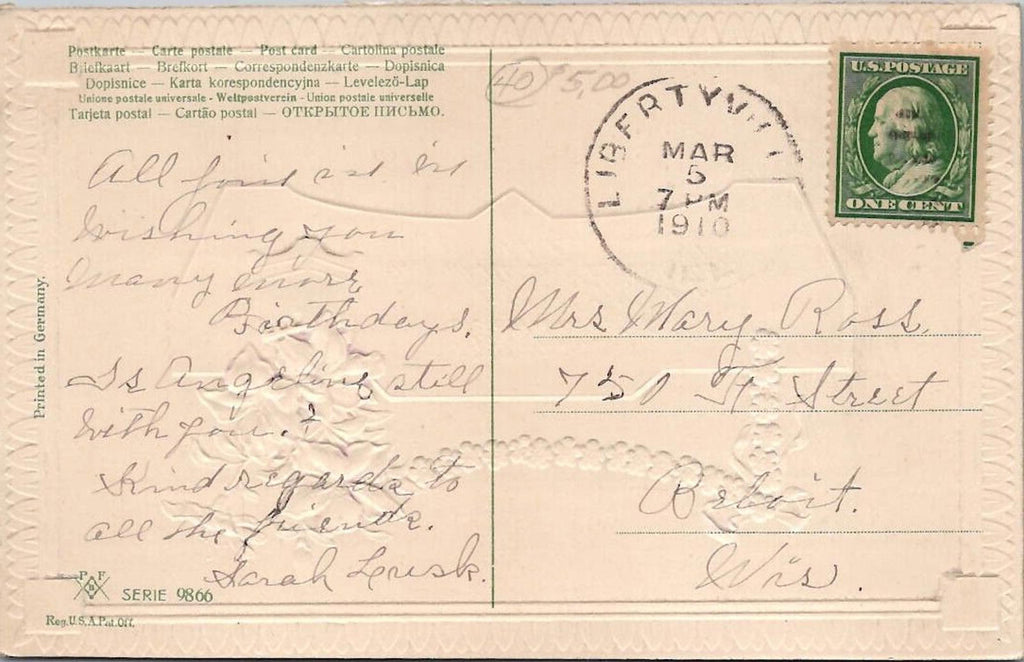 Postkarte — Carte postale — Post card — Cartolina postale
Briefkaart — Brefkort — Correspondenzkarte — Dopisnica
Dopisnice — Karta korespondencyjna — Levelező-Lap
Unione postale universale - Weltpostverein - Union postale universelle
Tarjeta postal — Cartão postal — ОТКРЫТОЕ ПИСЬМО.
40 $5.00
LIBERTYVILL
MAR
5
7 PM
1910
U.S. POSTAGE
ONE CENT
All
Wishing you
many more
Birthdays.
Is Angeline still
with you?
Kind regards to
all the friends.
Sarah Lusk.
Mrs Mary Ross
750 Street
Beloit.
Wis.
Printed in Germany.
P F
B
SERIE 9866
Reg. U.S.A. Pat. Off.